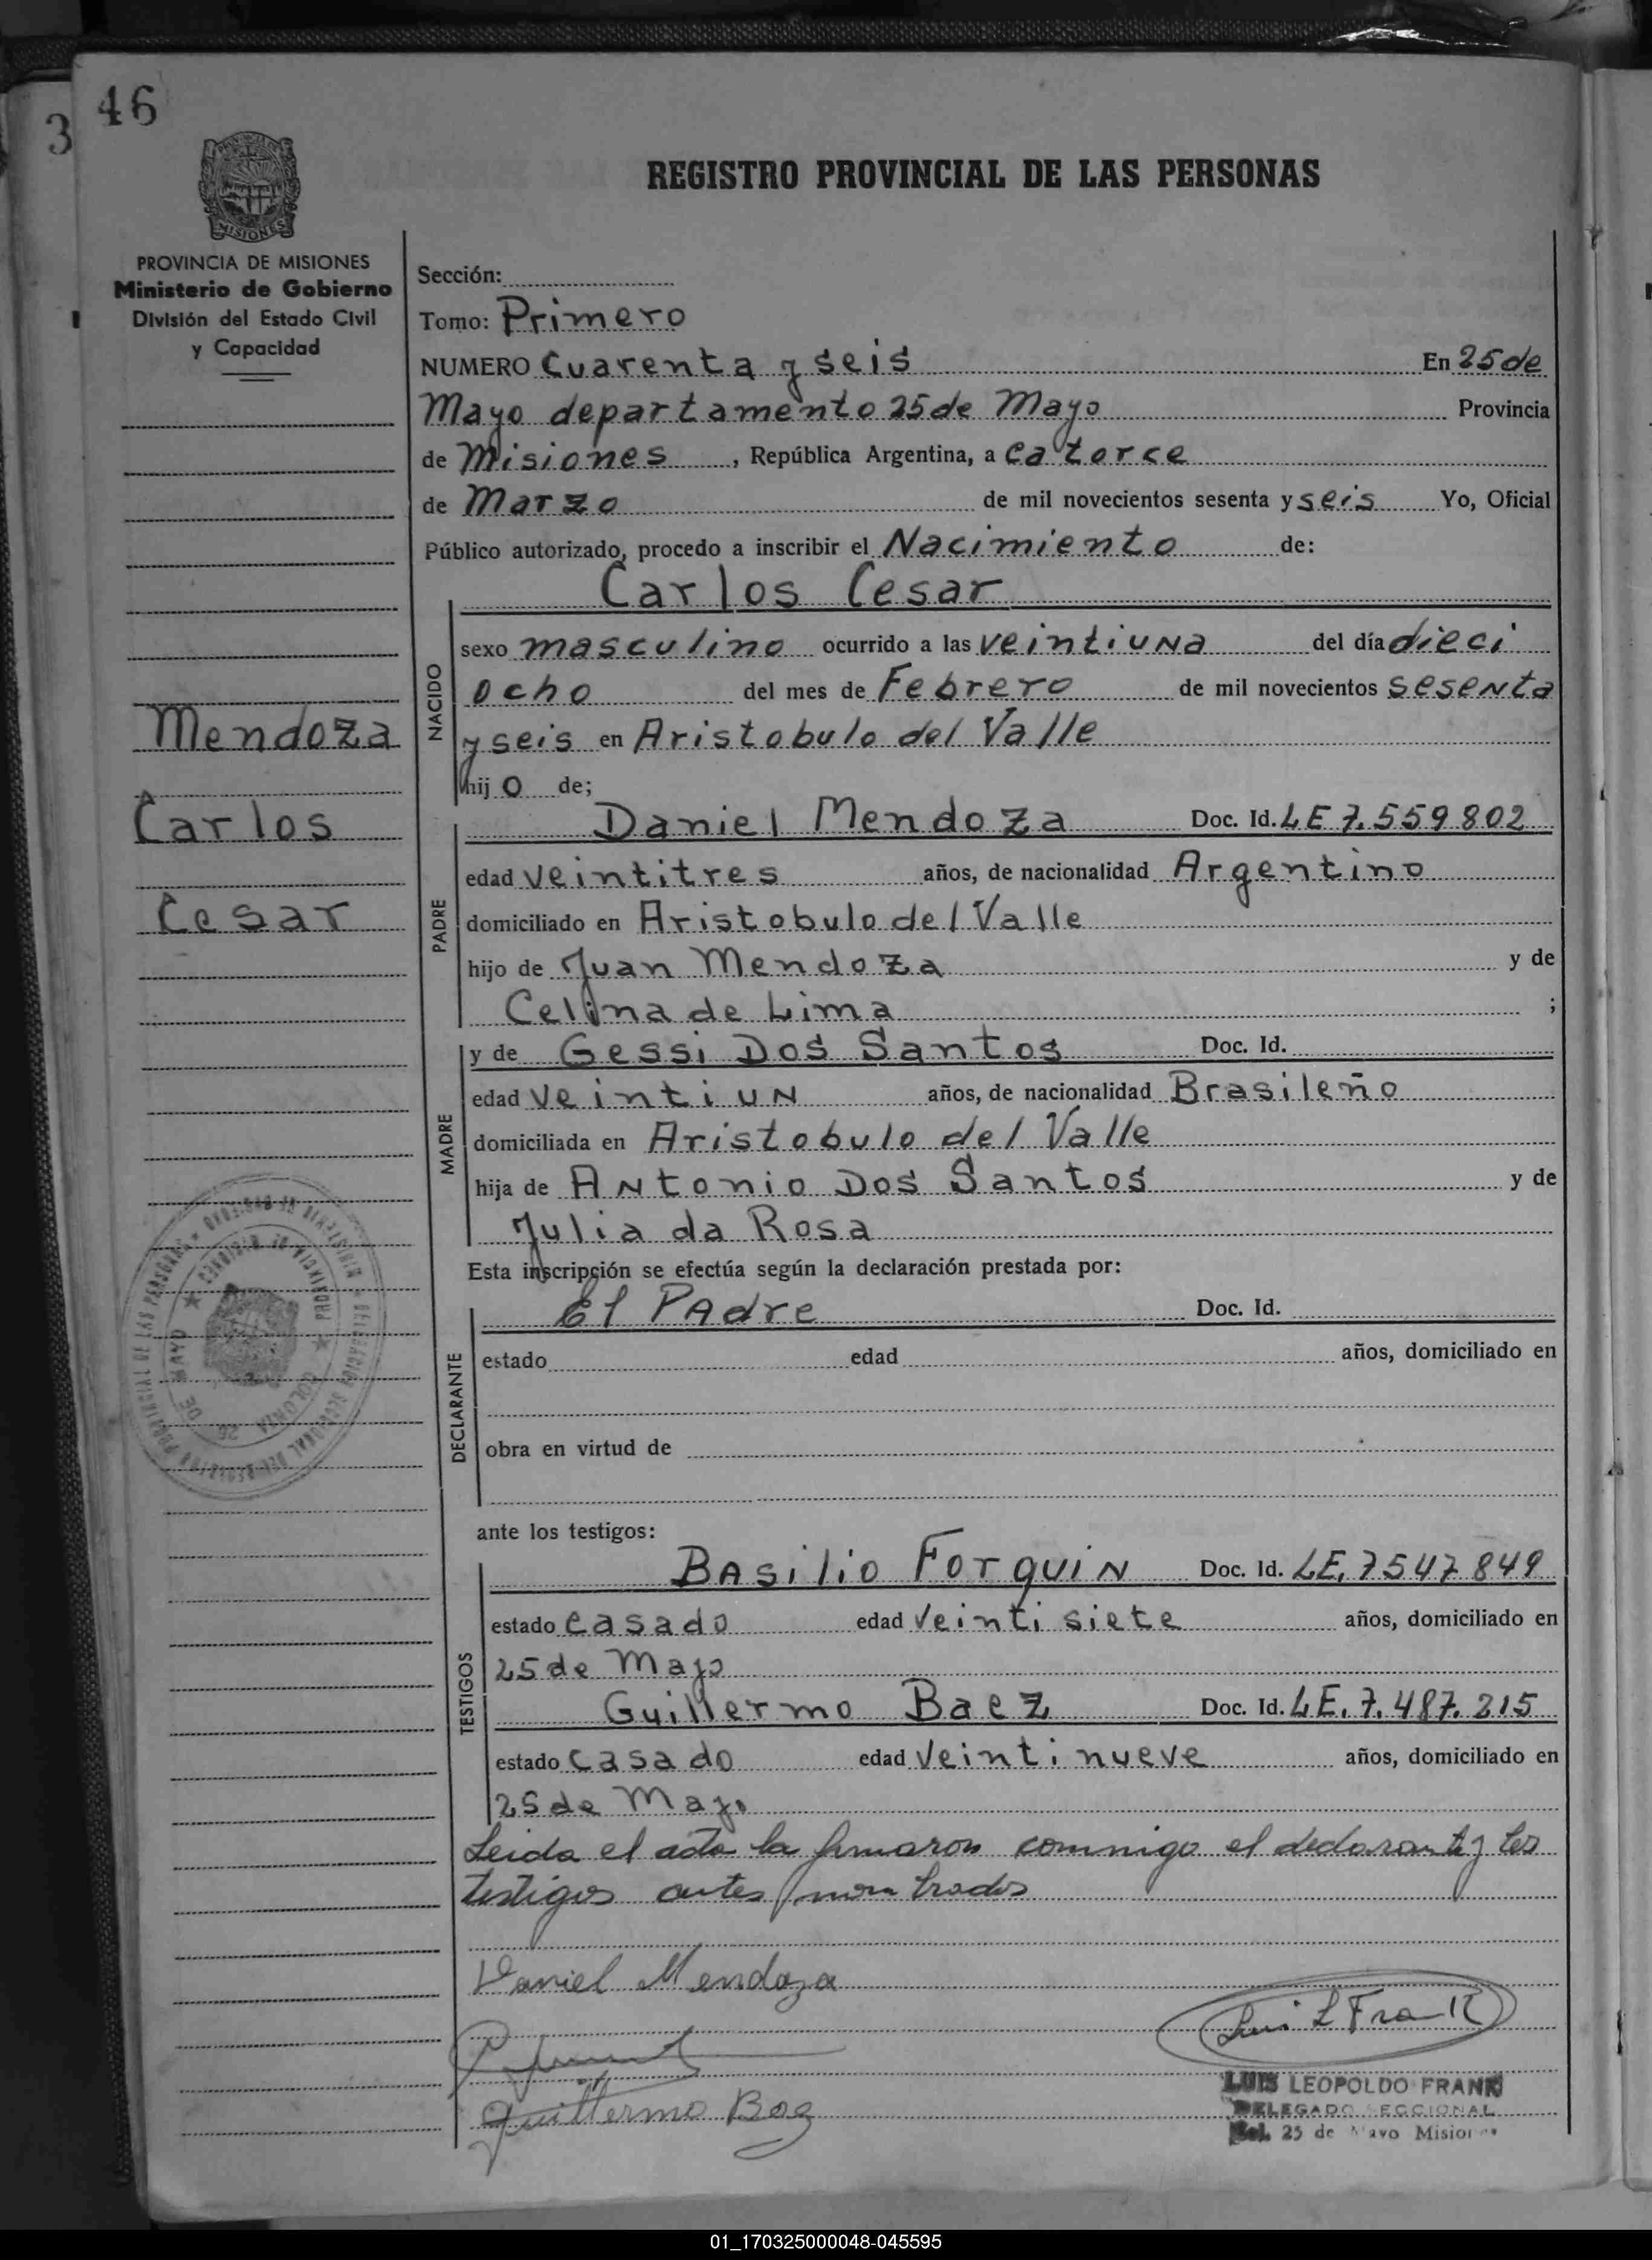 3
46
MISIONES
PROVINCIA DE MISIONES
Ministerio de Gobierno
División del Estado Civil
y Capacidad
REGISTRO PROVINCIAL DE LAS PERSONAS
Sección:
Tomo: Primero
NUMERO Cuarenta y seis En 25 de
Mayo departamento 25 de Mayo Provincia
de Misiones , República Argentina, a catorce
de Marzo de mil novecientos sesenta y seis Yo, Oficial
Público autorizado, procedo a inscribir el Nacimiento de:
Carlos Cesar
NACIDO
sexo masculino ocurrido a las veintiuna del día dieci
ocho del mes de Febrero de mil novecientos sesenta
y seis en Aristobulo del Valle
hij o de;
Mendoza
Carlos
Cesar
PADRE
Daniel Mendoza Doc. Id. LE 7.559.802
edad veintitres años, de nacionalidad Argentino
domiciliado en Aristobulo del Valle
hijo de Juan Mendoza y de
Celina de Lima ;
MADRE
y de Gessi Dos Santos Doc. Id.
edad veintiun años, de nacionalidad Brasileño
domiciliada en Aristobulo del Valle
hija de Antonio Dos Santos y de
Julia da Rosa
Esta inscripción se efectúa según la declaración prestada por:
DECLARANTE
El Padre Doc. Id.
estado edad años, domiciliado en
obra en virtud de
ante los testigos:
TESTIGOS
Basilio Forquin Doc. Id. LE. 7547849
estado casado edad veinti siete años, domiciliado en
25 de Mayo
Guillermo Baez Doc. Id. LE. 7.487.215
estado casado edad veinti nueve años, domiciliado en
25 de Mayo
Leida el acta la firmaron conmigo el declarante y los
testigos antes nombrados
Daniel Mendoza
Luis L Frank
Guillermo Baez
LUIS LEOPOLDO FRANK
DELEGADO SECCIONAL
Col. 25 de Mayo Misiones
01_170325000048-045595